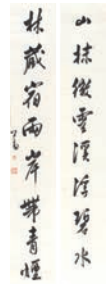 山抹微雲溪浮碧水
林藏宿雨岸帶青煙